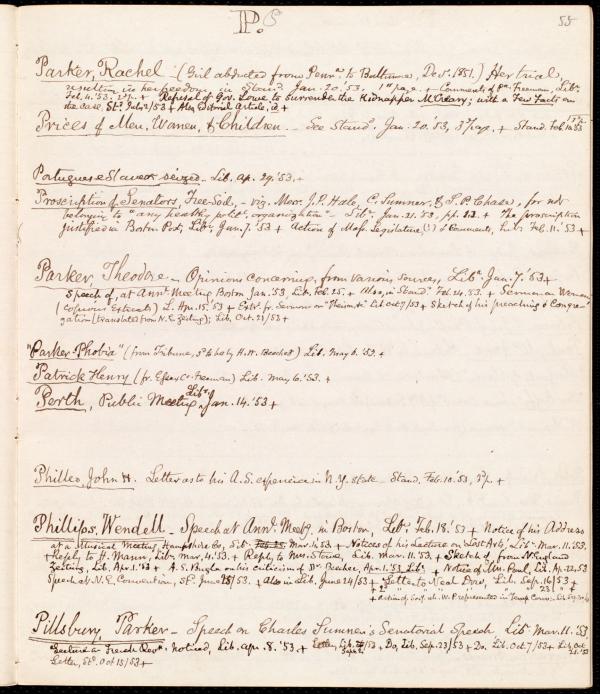 P. 55
Parker, Rachel — (Girl abducted from Penna. to Baltimore, Decr. 1851.) Her trial,
resulting in her freedom, in Stand. Jan. 20. '53. 1st page. + Comments of Pa. Freeman, Libr.
Feb. 4. '53. 2d p. + Refusal of Gov. Lowe to surrender the Kidnapper McCreary; with a Few Facts on
the case, St. July 2/53 + Editorial Article, id +
Prices of Men, Women, & Children — See Stand. Jan. 20. '53, 3d page. + Stand. Feb. 10. 53
Portuguese Slaver seized. Lib. Ap. 29. '53. +
Proscription of Senators, Free-Soil, — viz. Messr. J. P. Hale, C. Sumner, & S. P. Chase, for not
belonging to "any healthy polit. organization" — Libr. Jan. 21. '53, pp. + The proscription
justified in Boston Post, Libr. Jan. 7. '53 + Action of Mass. Legislature (!) & Comments, Lib. Feb. 11. '53 +
Parker, Theodore — Opinions concerning, from various sources, Libr. Jan. 7. '53 +
Speech of, at Annl. Meeting Boston Jan. '53. Lib. Feb. 25. + Also, in Stand. Feb. 24. 53. + Sermon on Woman,
(copious extracts) L. Apr. 15. '53 + Extr. fr. Sermon on "Theism &c" Lib. Oct. 7/53 + Sketch of his preaching & Congre-
gation (translated from N. E. Zeitung); Lib. Oct. 21/53 +
"Parker-Phobia" (from Tribune, by H. W. Beecher) Lib. May 6. '53. +
Patrick Henry (fr. Essex Co. Freeman) Lib. May 6. '53. +
Perth, Public Meeting, Libr. Jan. 14. '53 +
Philleo, John H. Letter as to his A. S. experience in N. Y. state — Stand. Feb. 10. '53, 3d p. +
Phillips, Wendell — Speech at Annl. Meetg. in Boston, Libr. Feb. 18. '53 + Notice of his Address
at a Musical Meeting, Hampshire Co, Lib. Mar. 4. '53 + Notices of his Lecture on Lost Arts, Libr. Mar. 11. '53.
+ Reply to H. Mann, Libr. Mar. 4. '53. + Reply to Mrs. Stowe, Lib. Mar. 11. '53, + Sketch of, from N. England
Zeitung, Lib. Apr. 1. '53 + A. S. Bugle on his criticism of Dr. Beecher, Apr. 1. '53. Libr. + Notice of, Mrs. Paul, Lib. Ap. 22, 53
Speech at N. E. Convention, St. June /53 + also in Lib. June 24/53 + Letter to Neal Dow, Lib. Sep. 16/53 +
+ 2d " " 23 " " +
Pillsbury, Parker — Speech on Charles Sumner's Senatorial Speech Libr. Mar. 11. '53,
Lecture on French Revn. noticed, Lib. Apr. 8. '53 + Letter, Lib. Sept. /53 + Do, Lib. Sep. 23/53 + Do. Lib. Oct. 7/53 + Lib. Oct. 21. '53
Letter, St. Oct 15/53 +